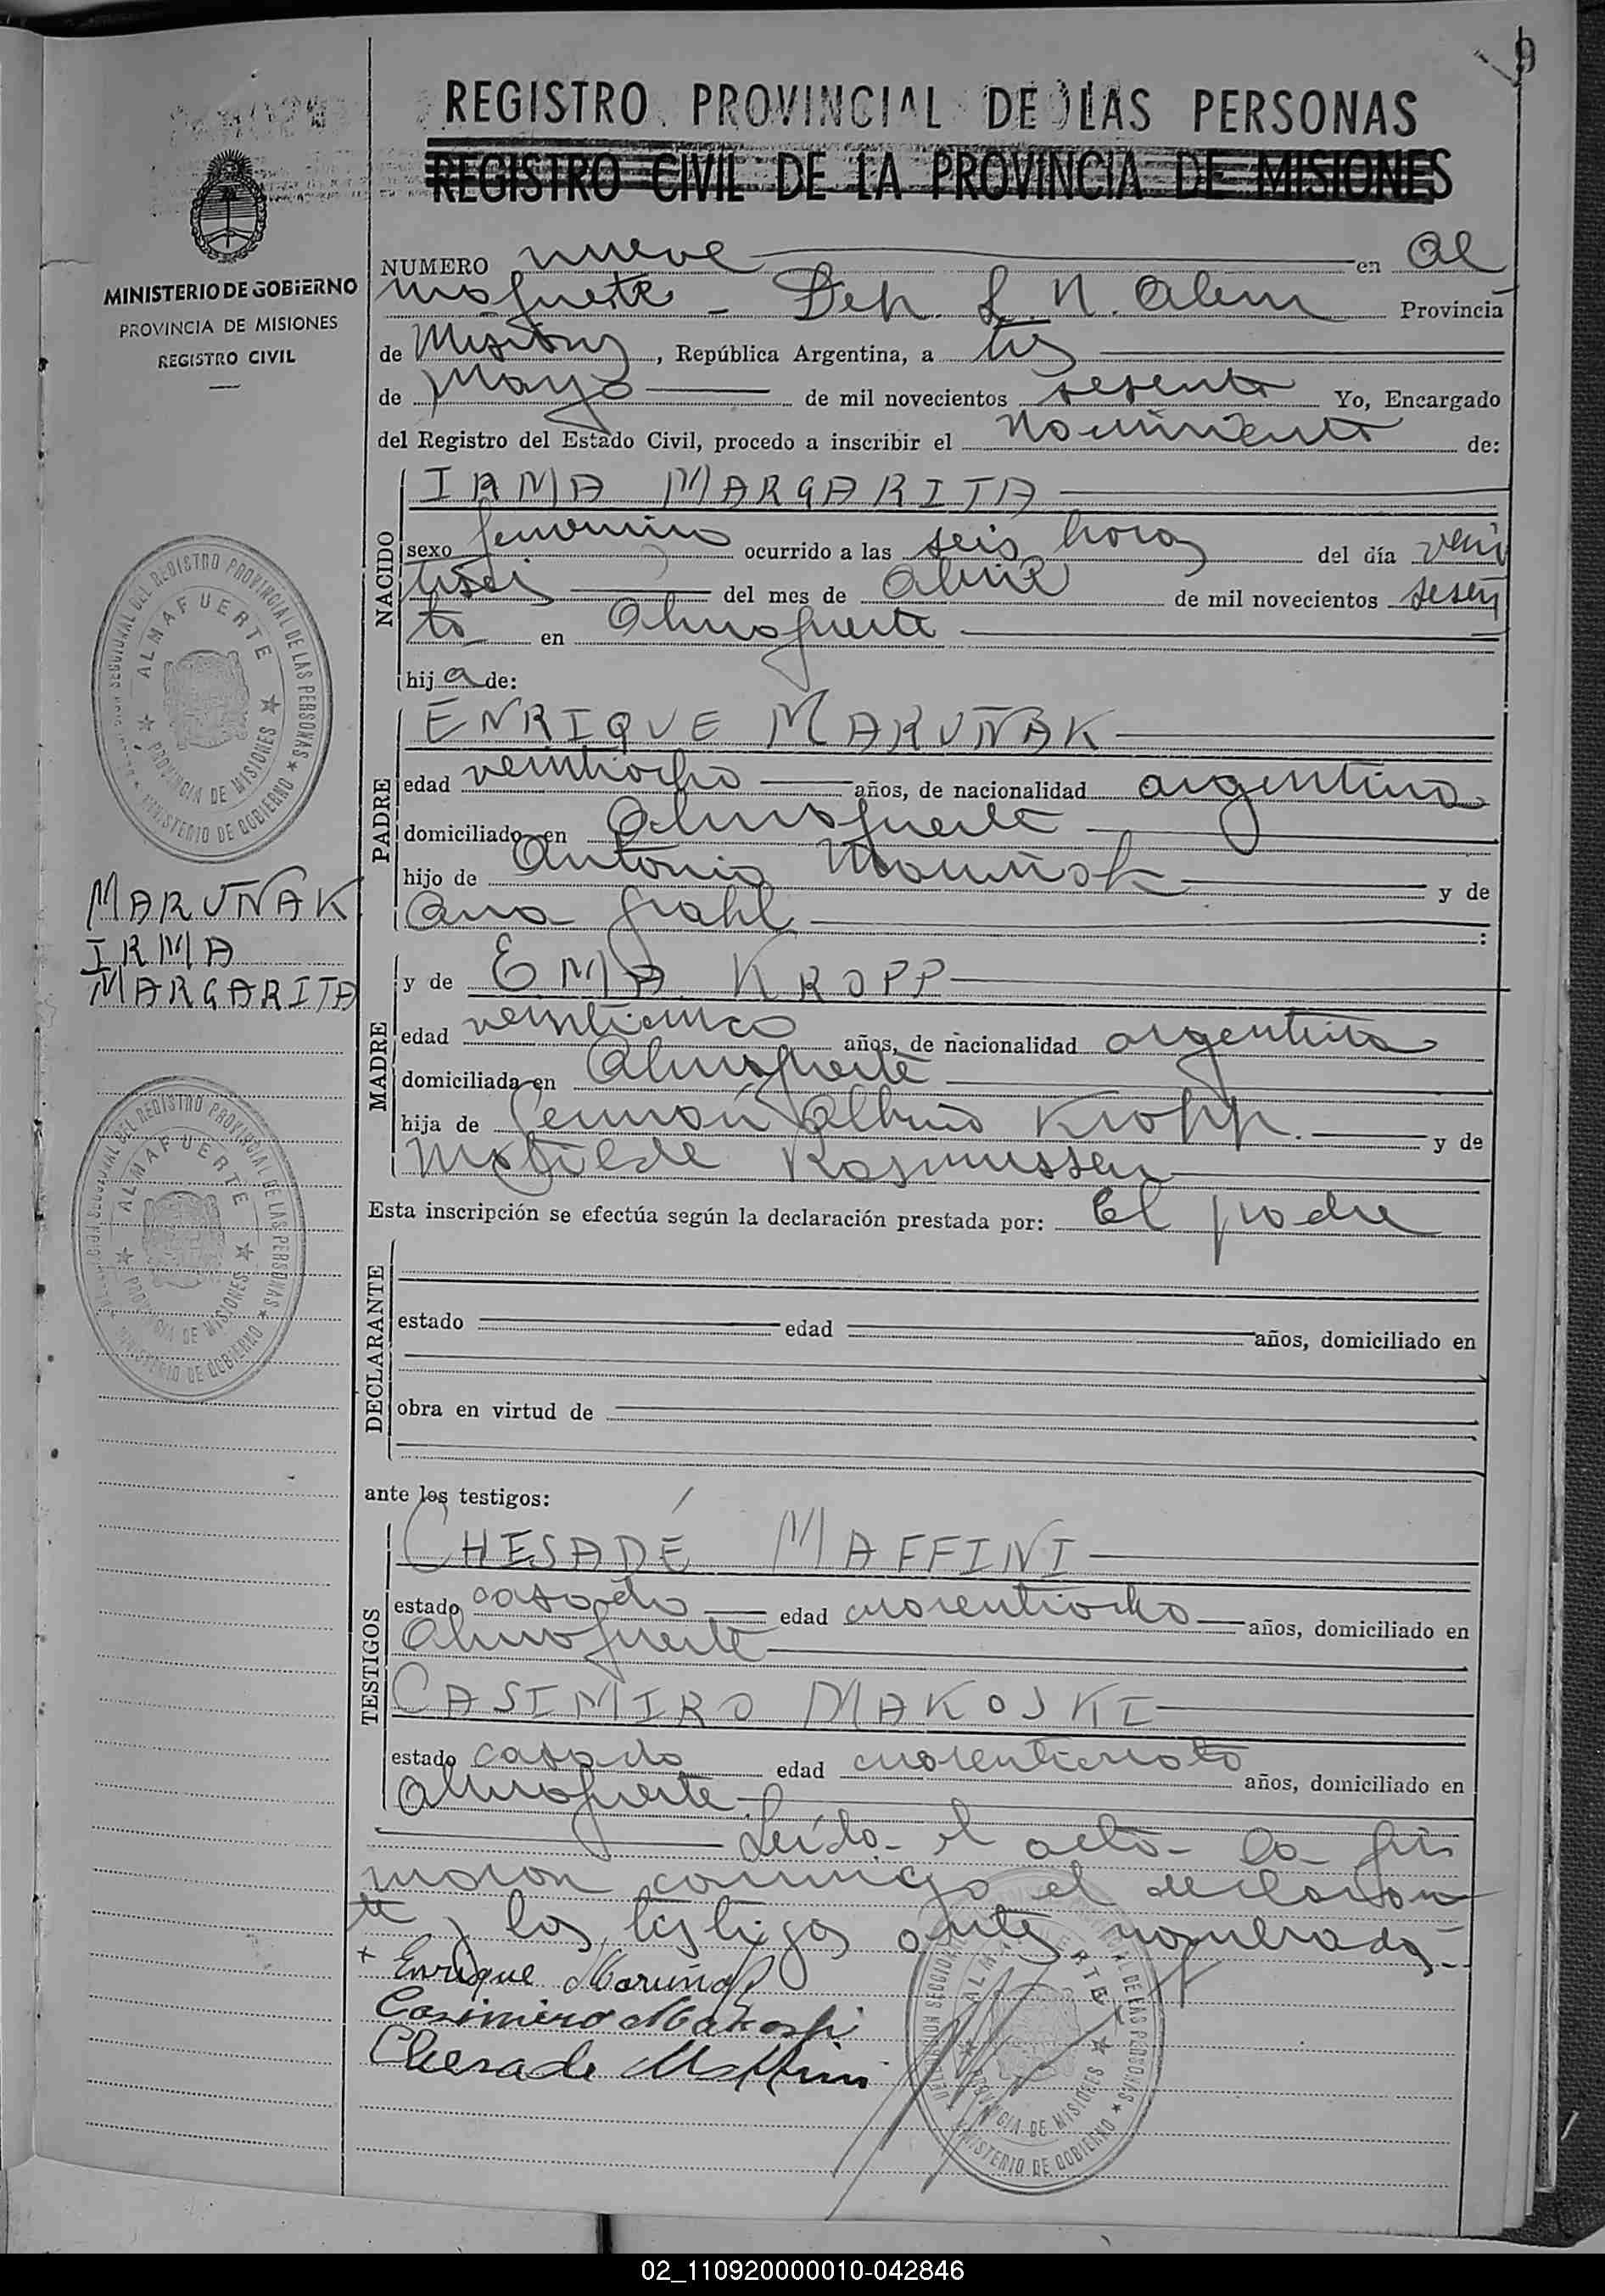 9
REGISTRO PROVINCIAL DE LAS PERSONAS
REGISTRO CIVIL DE LA PROVINCIA DE MISIONES
MINISTERIO DE GOBIERNO
PROVINCIA DE MISIONES
REGISTRO CIVIL
NUMERO nueve en Al
mafuerte - Dep. L. N. Alem Provincia
de Misiones, República Argentina, a tres
de Mayo de mil novecientos sesenta Yo, Encargado
del Registro del Estado Civil, procedo a inscribir el Nacimiento de:
NACIDO
IRMA MARGARITA
sexo femenino ocurrido a las seis horas del día vein
tiseis del mes de abril de mil novecientos sesen
ta en Almafuerte
hija de:
PADRE
ENRIQUE MARUÑAK
edad veintiocho años, de nacionalidad argentina
domiciliado en Almafuerte
hijo de Antonio Maruñak y de
Ana Grahl
MARUÑAK
IRMA
MARGARITA
MADRE
y de EMA KROPP
edad veinticinco años, de nacionalidad argentina
domiciliada en Almafuerte
hija de Germán Albino Kropp. y de
Matilde Rasmussen
Esta inscripción se efectúa según la declaración prestada por: El padre
DECLARANTE
estado edad años, domiciliado en
obra en virtud de
ante los testigos:
TESTIGOS
CHESADÉ MAFFINI
estado casado edad cuarentiocho años, domiciliado en
Almafuerte
CASIMIRO MAKOSKI
estado casado edad cuarenticuatro años, domiciliado en
Almafuerte.
Leída el acta la fir
maron conmigo el declaran
te y los testigos antes nombrados.-
+ Enrique Maruñak
Casimiro Makoski
Chesade Maffini
DELEGACION SECCIONAL DEL REGISTRO PROVINCIAL DE LAS PERSONAS
ALMAFUERTE
PROVINCIA DE MISIONES
MINISTERIO DE GOBIERNO
02_110920000010-042846